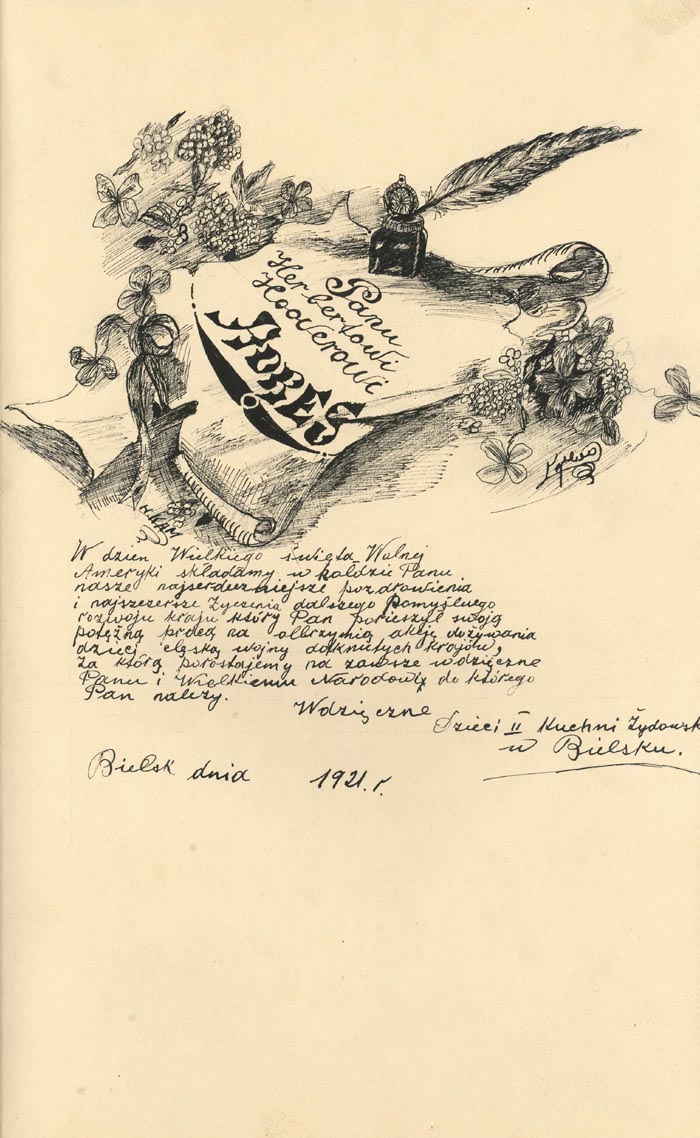 Panu
Herbertowi
Hooverowi
ADRES
W dzien Wielkiego święta Wolnej
Ameryki składamy w hołdzie Panu
nasze najserdeczniejsze pozdrowienia
i najszczersze życzenia dalszego pomyślnego
rozwoju kraju który Pan porieszył swoją
potężną pracą na olbrzymią akcję dożywiania
dzieci clęską wojny dotkniętych krajów,
za którą porostajemy na zawsze wdzięczne
Panu i Wielkiemu Narodowi do którego
Pan należy.
Wdzięczne
Dzieci II Kuchni Żydowsk
w Bielsku.
Bielsk dnia 1921.r.